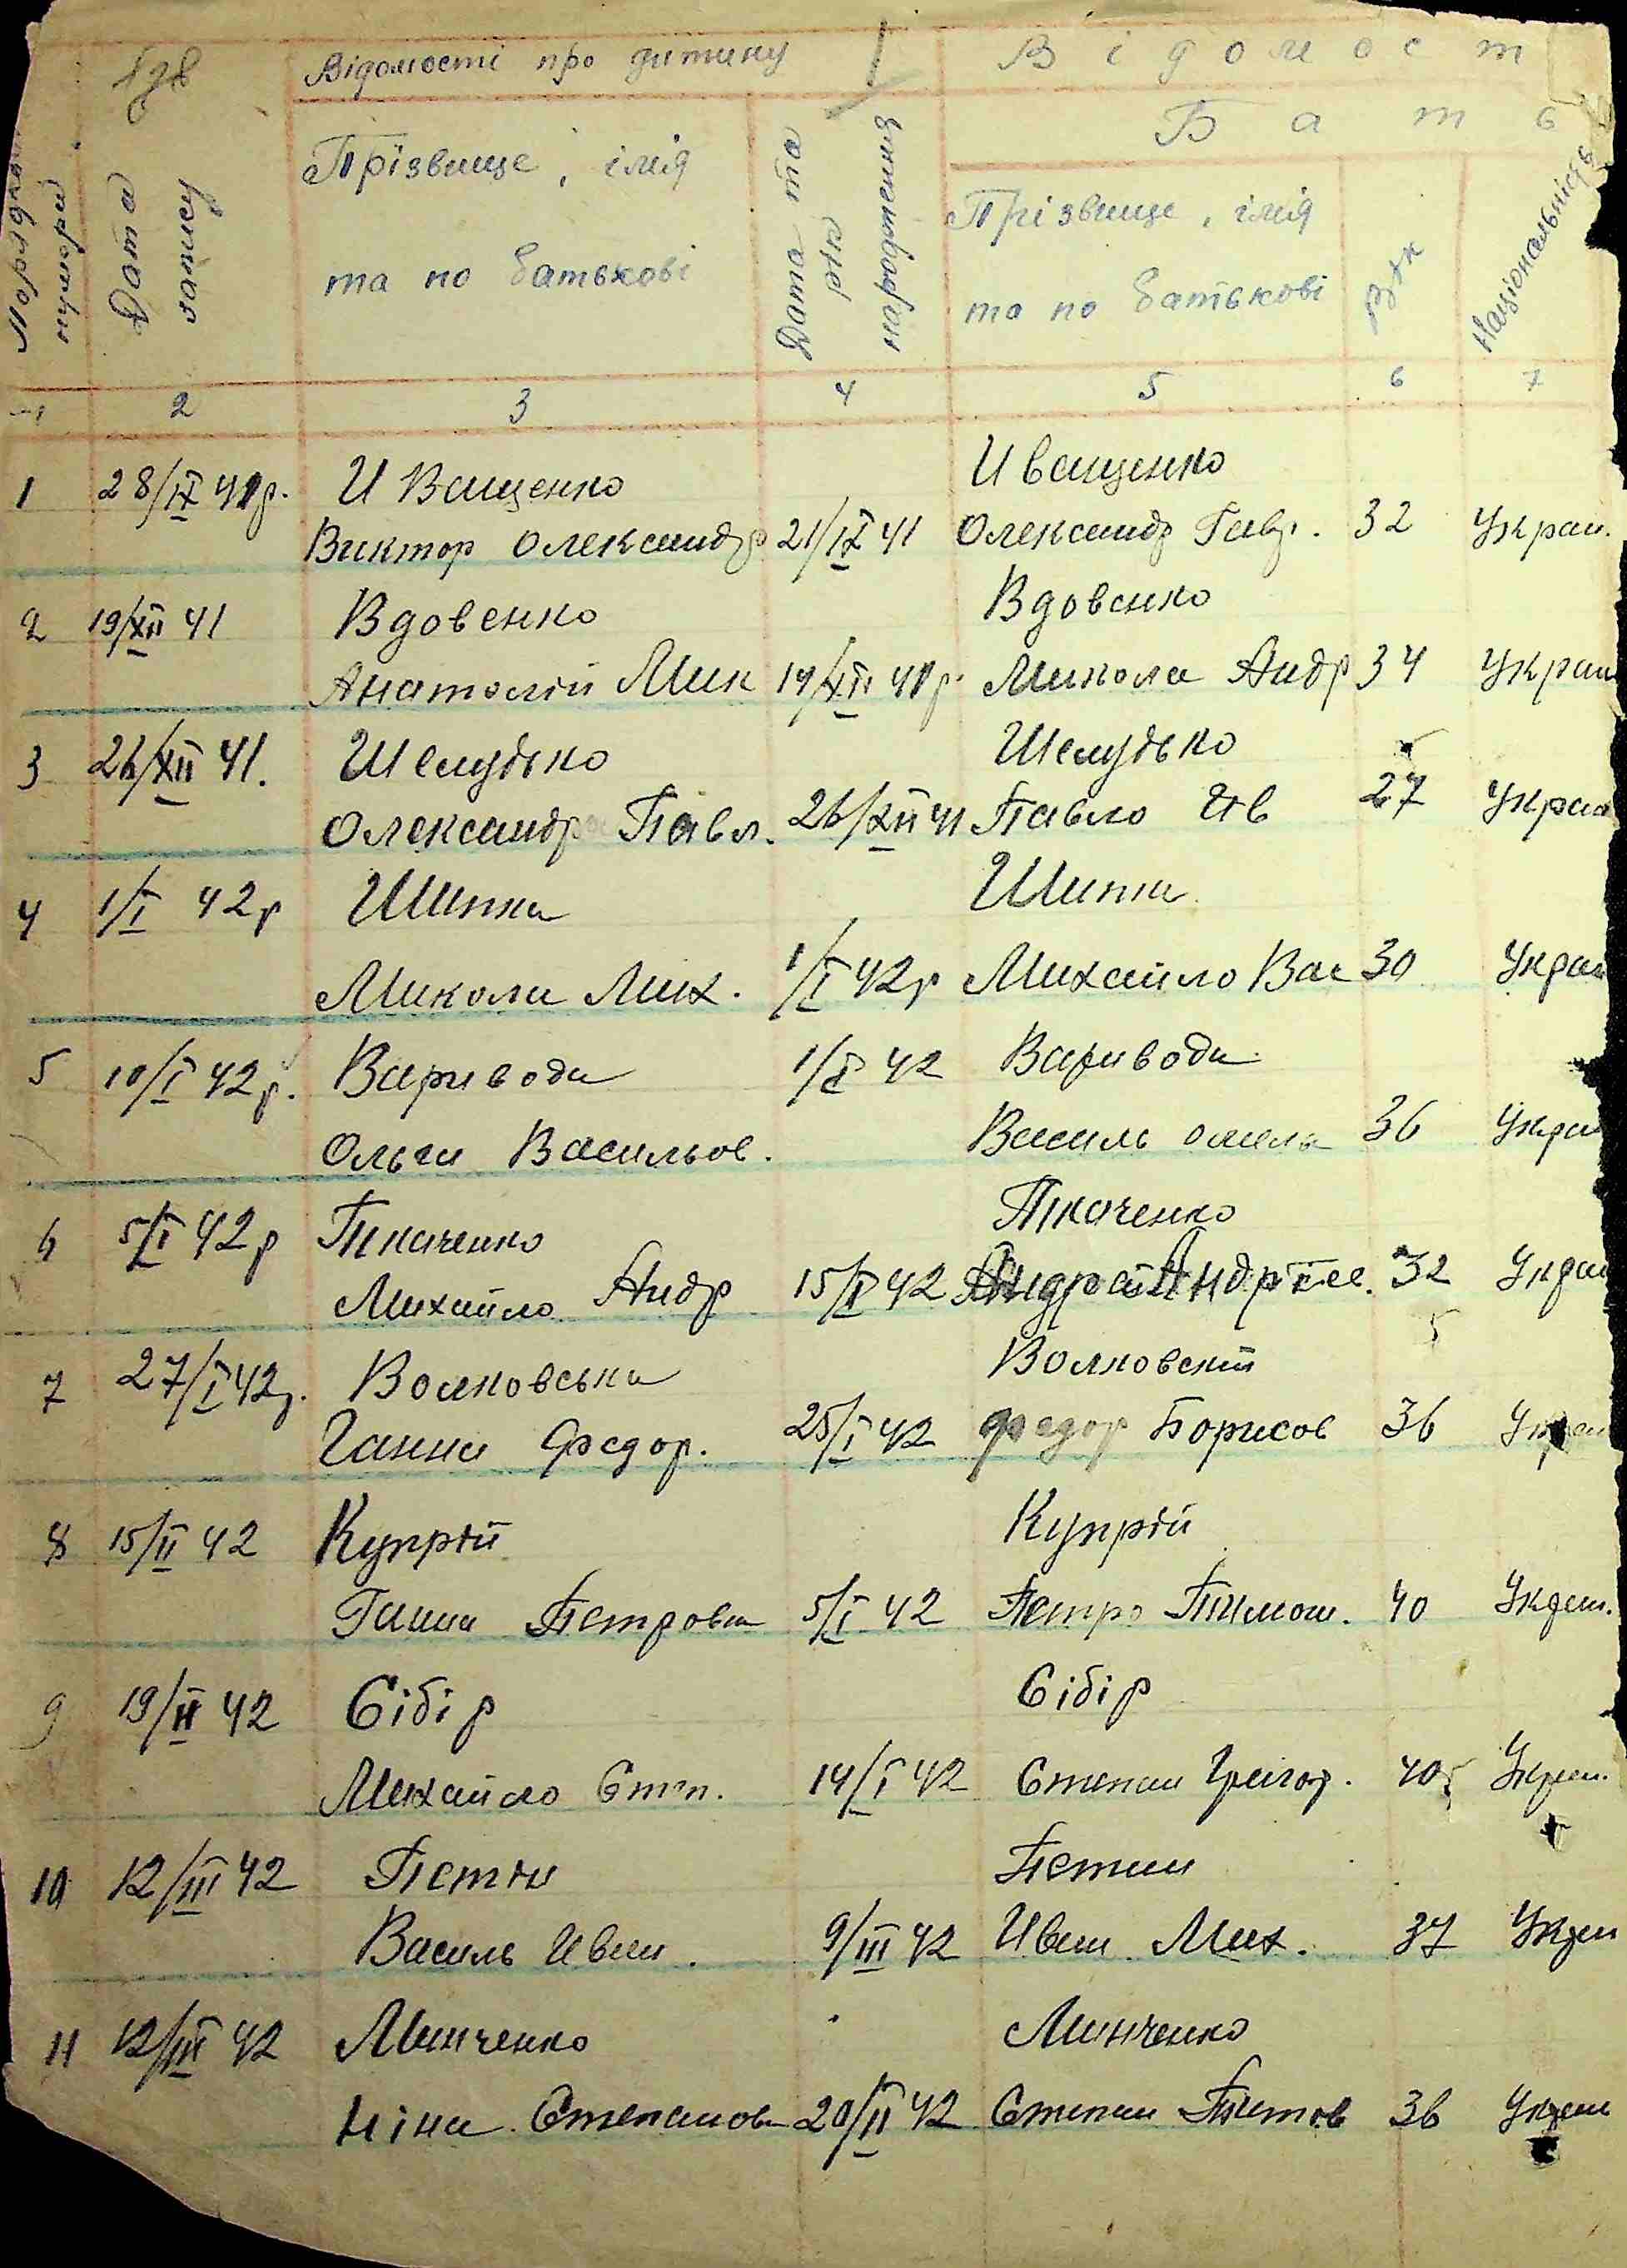 Відомості про дитину
В і д о м о с т
Б а т ь
Порядковий
номери
Дата
запису
Прізвище, імія
та по батькові
Дата та
рік
народження
Прізвище, імія
та по батькові
Вік
Національність
1 2 3 4 5 6 7
1 28/IX 41р. И Ващенко Иващенко
Виктор Олександр 21/IX 41 Олександр Гавр. 32 Украи.
2 19/XII 41 Вдовенко Вдовенко
Анатолій Мик 14/XII 41р. Микола Андр 34 Украи
3 26/XII 41. Шелудько Шелудько
Олександр Павл. 26/XII 41 Павло Ив 27 Украи
4 1/I 42р Шипка Шипка
Микола Мих. 1/I 42р Михайло Вас 30 Украи
5 10/I 42р. Варивода 1/I 42 Варивода
Ольга Васильов. Василь Омель 36 Украи
6 5/I 42р Ткаченко Ткаченко
Михайло Андр 15/I 42 Андрій 32 Украи
7 27/I 42р. Волковська Волковскій
Ганна Федор. 25/I 42 Федор Борисов 36 Украи
8 15/II 42 Купрій Купрій
Ганна Петровна 5/I 42 Петро Тимош. 40 Украи.
9 19/II 42 Сібір Сібір
Михайло Степ. 14/I 42 Степан Григор. 40 Украи.
10 12/III 42 Петін Петин
Василь Иван. 9/III 42 Иван Мих. 37 Украи
11 12/III 42 Минченко Минченко
Ніна Степанов 20/II 42 Степан Титов 36 Украи